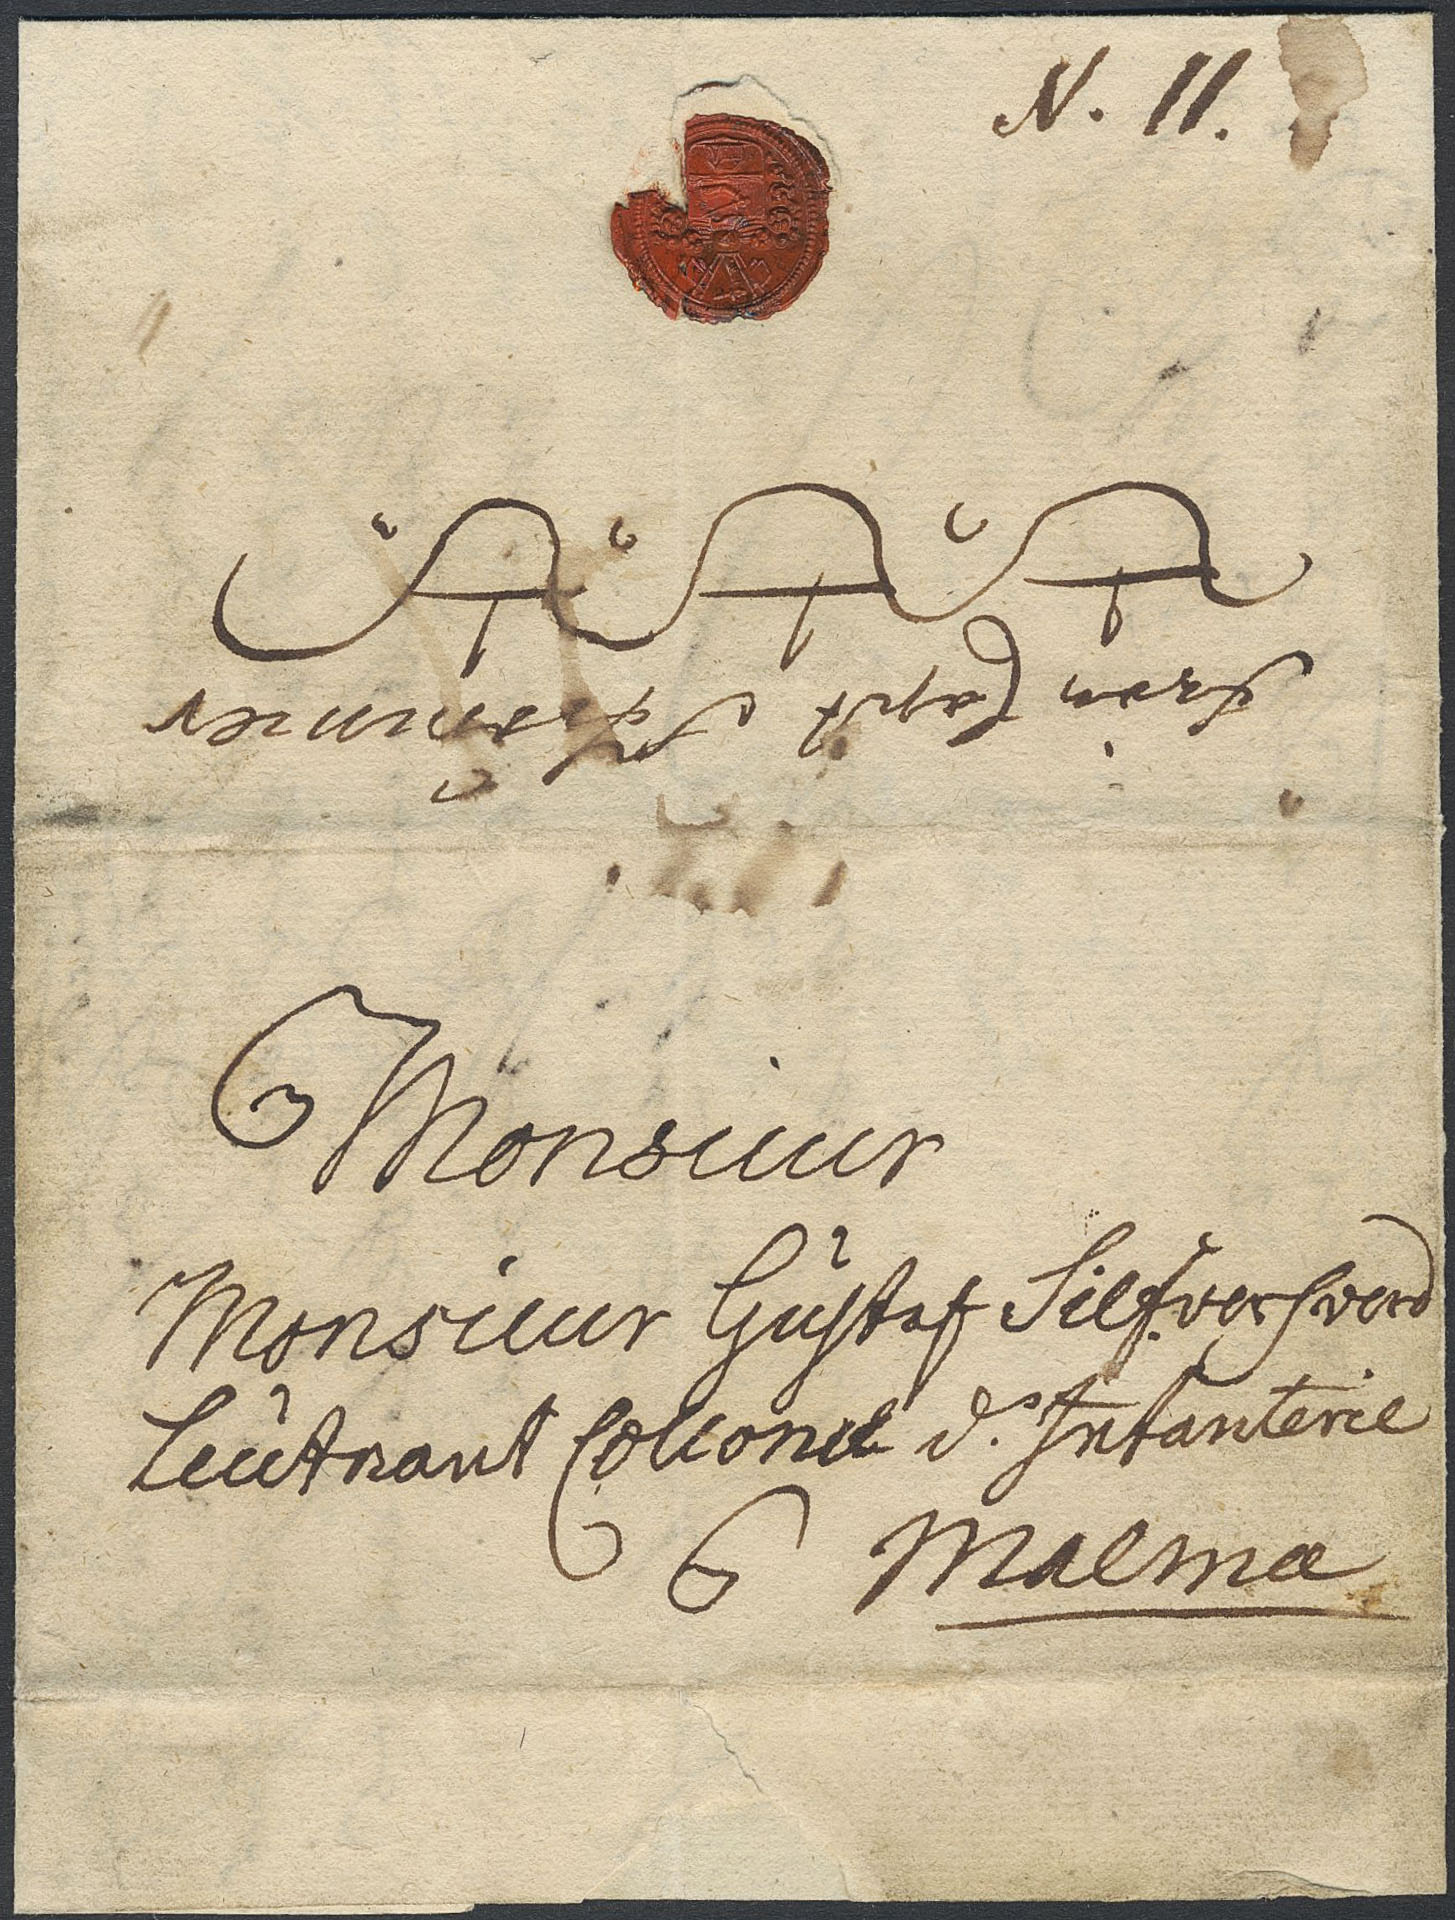 N. 11.
från Capit
Monsieur
Monsieur Gustaf Silfversverd
Leutnant Collonel d'Infanterie
a Malmæ